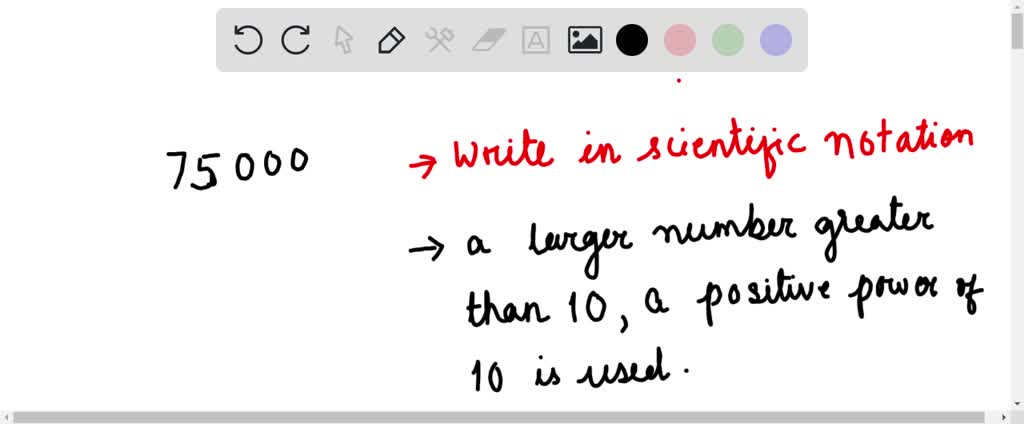 A
75000
→ Write in scientific notation
→ a larger number greater
than 10, a positive power of
10 is used.